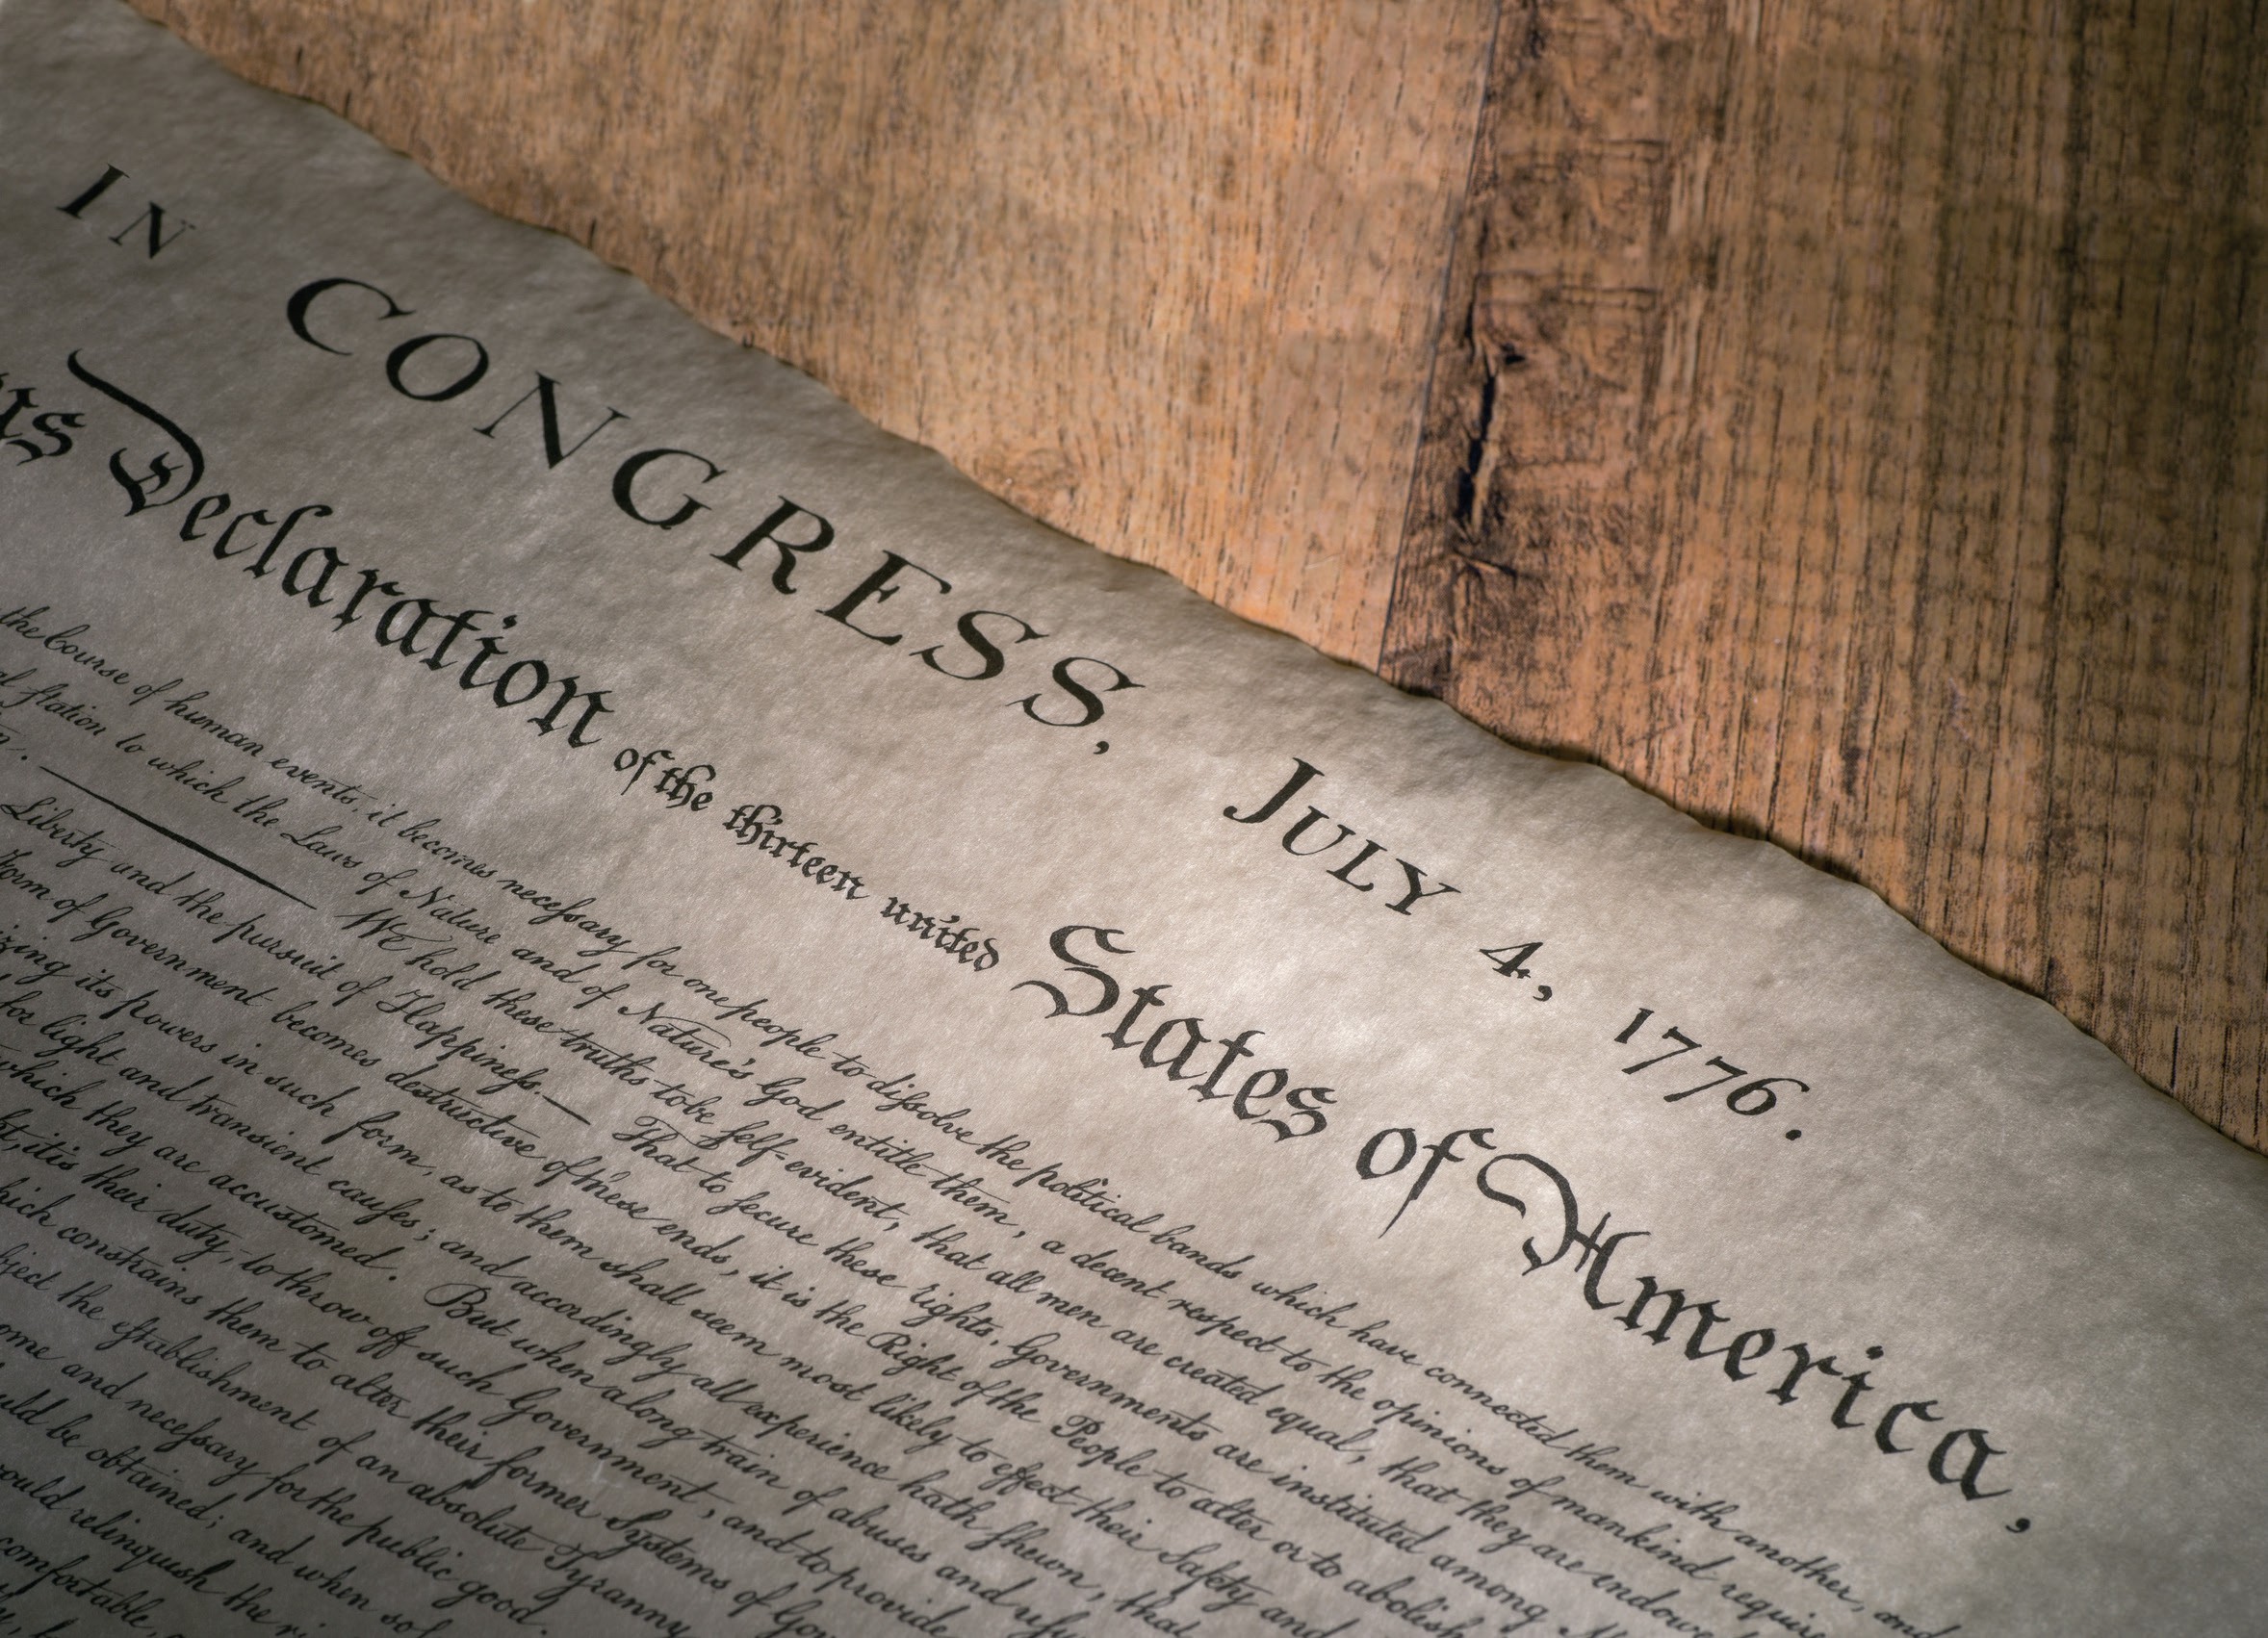 IN CONGRESS, JULY 4, 1776.
us Declaration of the thirteen united States of America,
the Course of human events, it becomes necessary for one people to dissolve the political bands which have connected them with another, and
station to which the Laws of Nature and of Nature's God entitle them, a decent respect to the opinions of mankind require
We hold these truths to be self-evident, that all men are created equal, that they are endowe
Liberty and the pursuit of Happiness. — That to secure these rights, Governments are instituted among
Form of Government becomes destructive of these ends, it is the Right of the People to alter or to abolish
izing its powers in such form, as to them shall seem most likely to effect their Safety and
for light and transient causes; and accordingly all experience hath shewn, that
which they are accustomed. But when a long train of abuses and usu
t, it is their duty, to throw off such Government, and to provide
hich constrains them to alter their former Systems of Gov
ject the establishment of an absolute Tyranny
ome and necessary for the public good.
uld be obtained; and when so
ould relinquish the ri
comfortable,